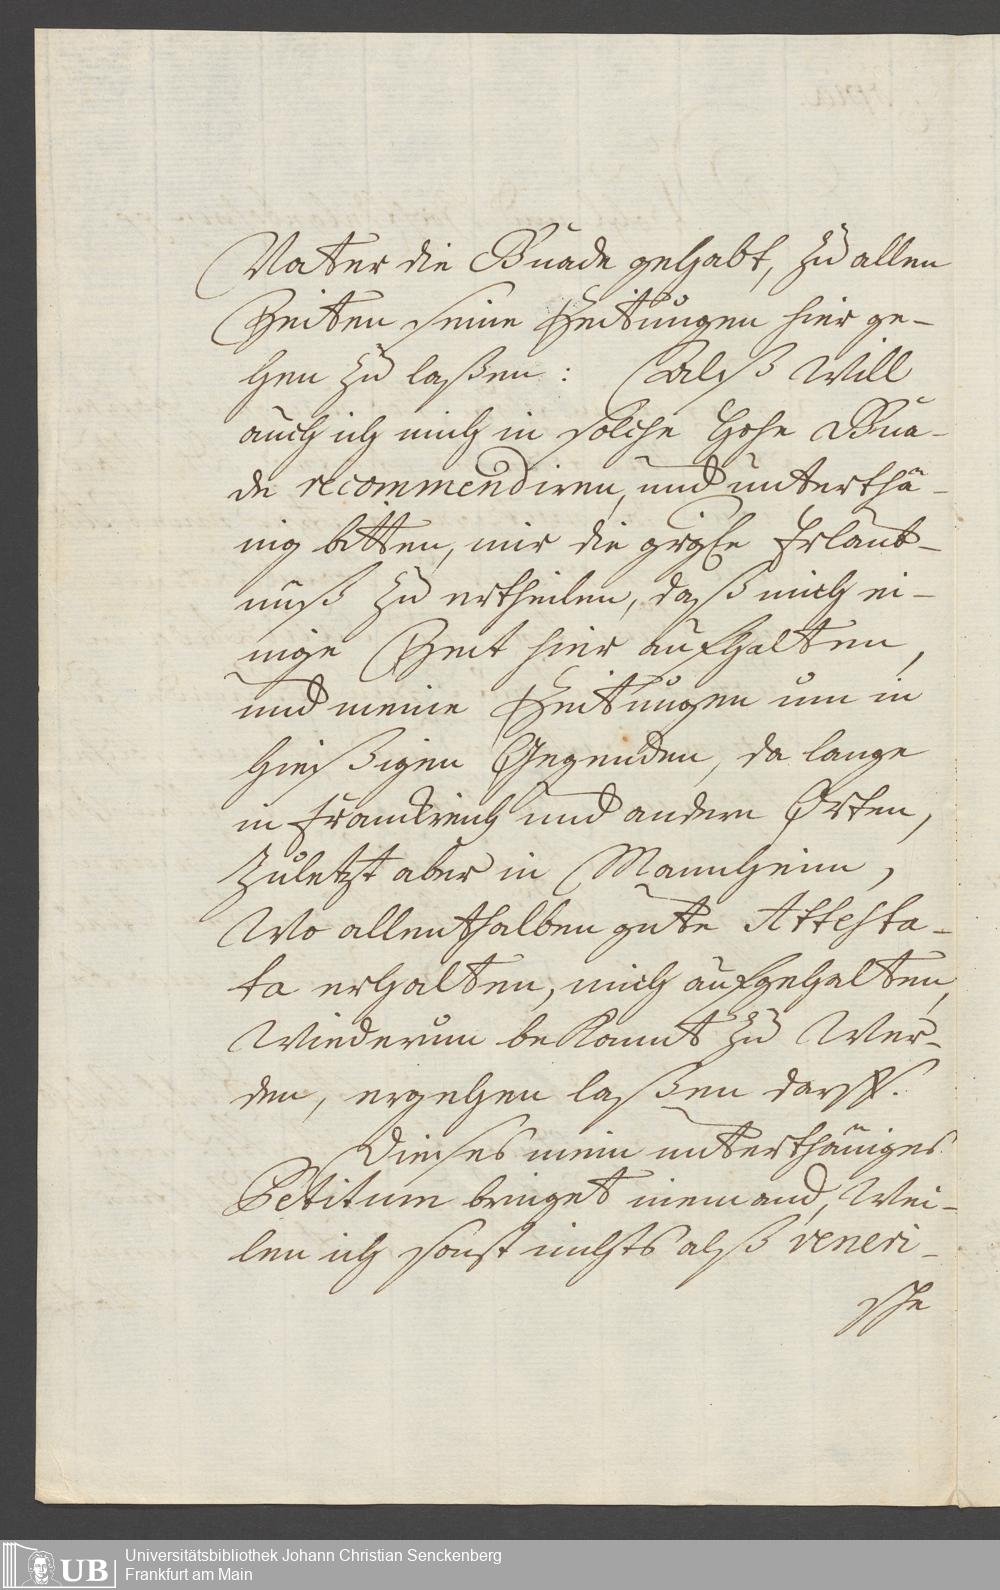 Vatter die Gnade gehabt, zu allen
Zeiten seine Zeitungen hier ge-
hen zu laßen: Alß Will
auch ich mich in solche hohe Gna-
de recommendiren, und unterthä-
nig bitten, mir die große Erlaub-
nuß zu ertheilen, daß mich ei-
nige Zeit hier aufhalten,
und meine Zeitungen um in
hießigen Gegenden, da lange
in Franckreich und andern Orten,
Zuletzt aber in Mannheim,
Wo allenthalben gute Attesta-
ta erhalten, mich aufgehalten,
Wiederum bekannt zu Wer-
den, ergehen laßen darff.
Dieses mein unterthäniges
Petitum bringet niemand, Wei-
len ich sonst nichts alß veneri-
sche
Universitätsbibliothek Johann Christian Senckenberg
Frankfurt am Main
UB